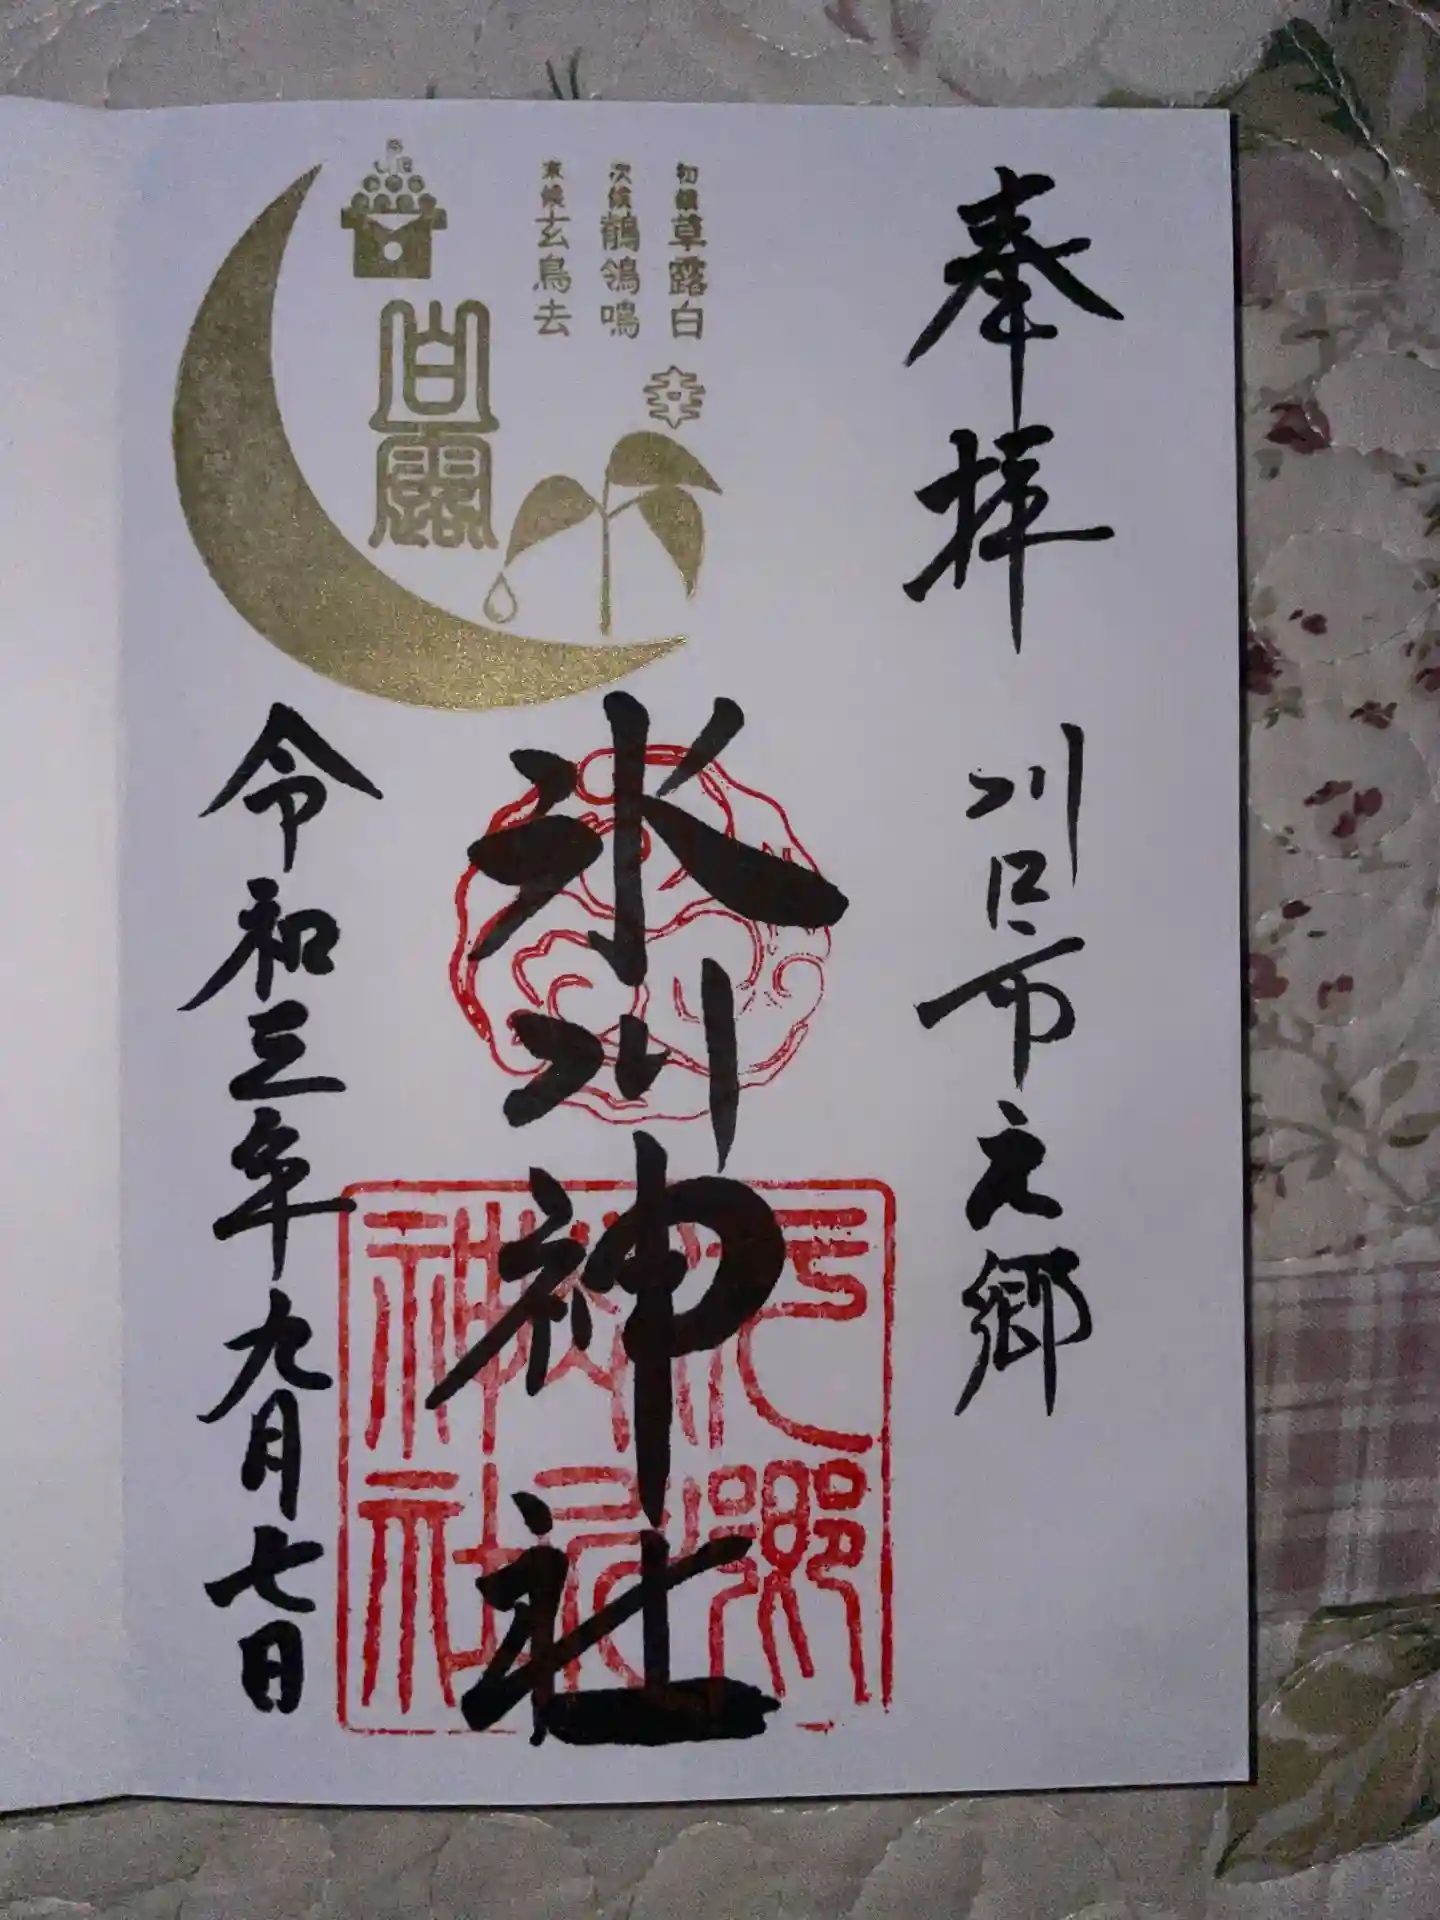 奉拝
川口市元郷
初候 草露白
次候 鶺鴒鳴
末候 玄鳥去
白露
氷川神社
元郷
氷川
神社
令和三年九月七日